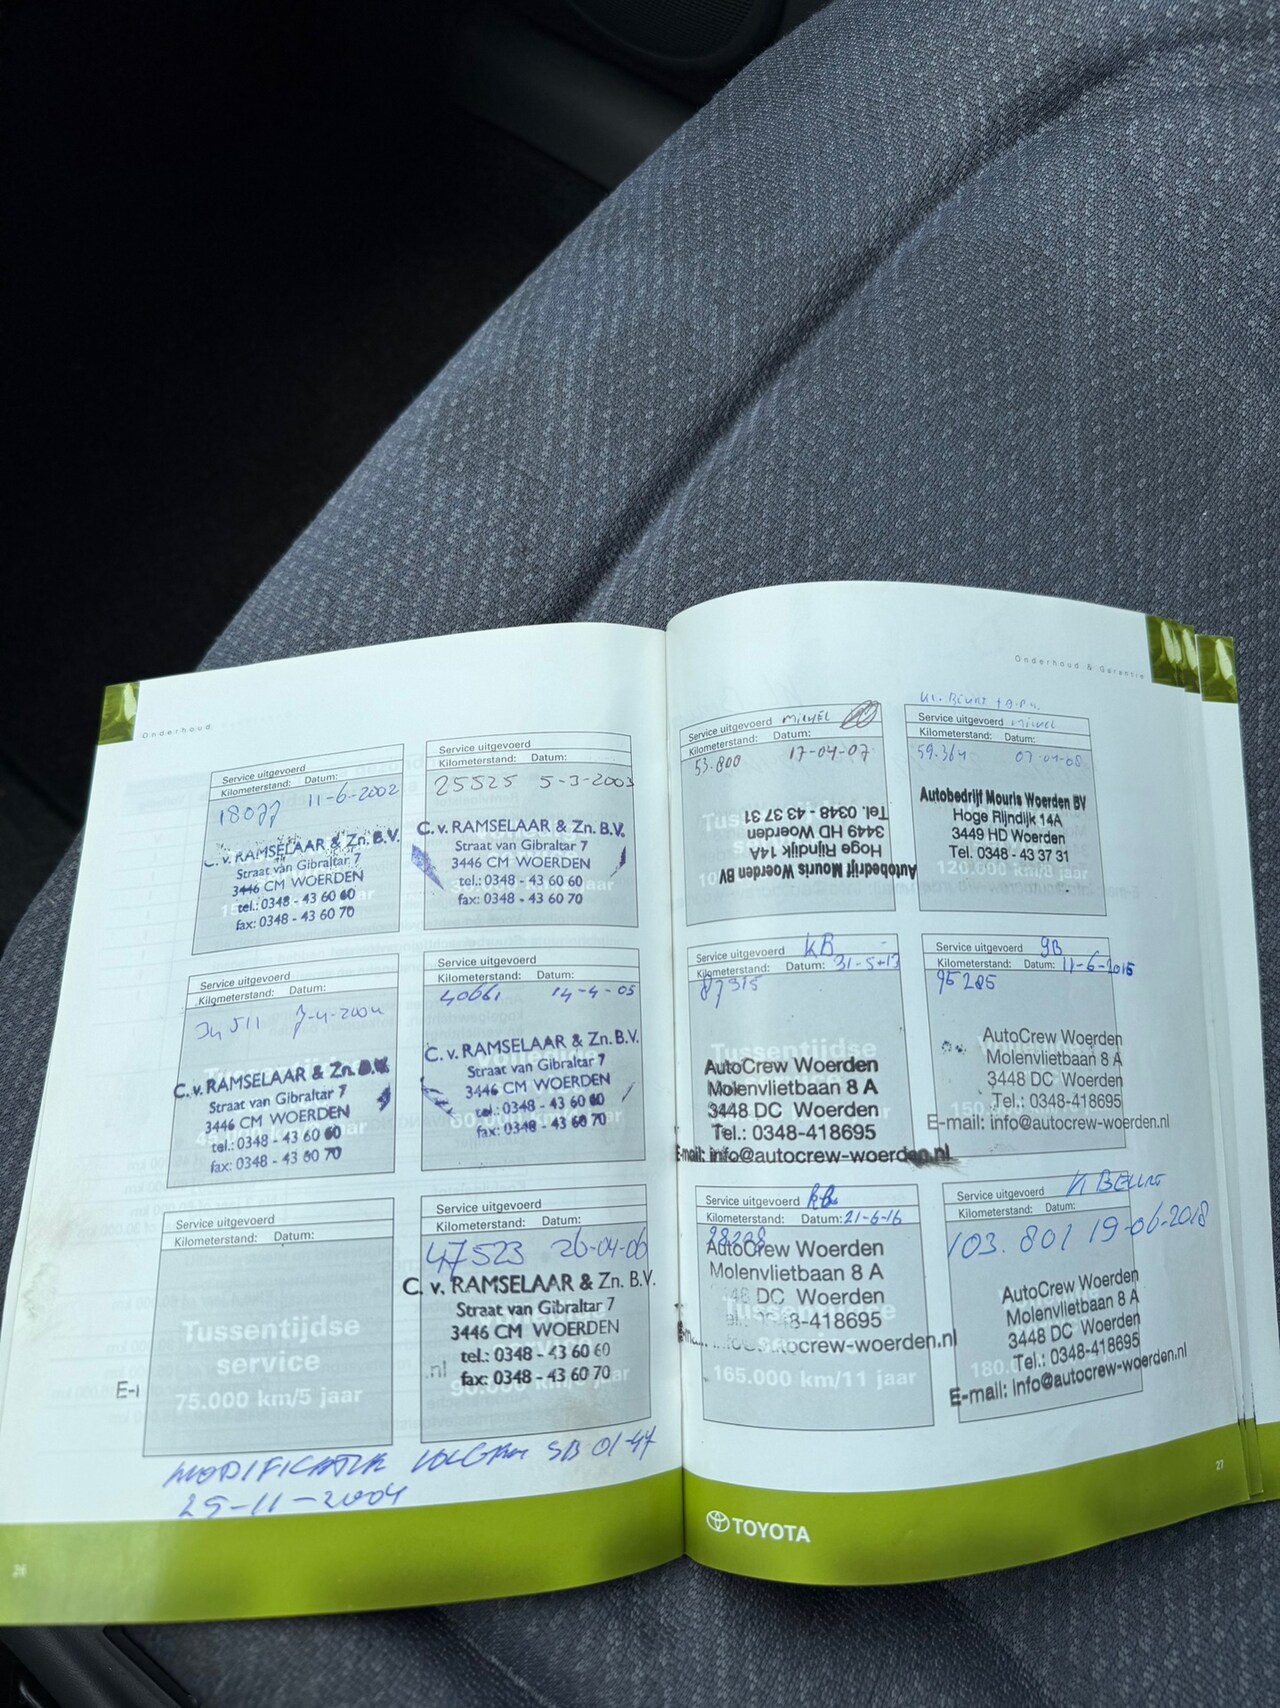 Onderhoud
Service uitgevoerd
Kilometerstand: Datum:
18077 11-6-2002
C. v. RAMSELAAR & Zn. B.V.
Straat van Gibraltar 7
3446 CM WOERDEN
tel.: 0348 - 43 60 60
fax: 0348 - 43 60 70
Service uitgevoerd
Kilometerstand: Datum:
25525 5-3-2003
C. v. RAMSELAAR & Zn. B.V.
Straat van Gibraltar 7
3446 CM WOERDEN
tel.: 0348 - 43 60 60
fax: 0348 - 43 60 70
Service uitgevoerd
Kilometerstand: Datum:
34511 7-4-2004
C. v. RAMSELAAR & Zn. B.V.
Straat van Gibraltar 7
3446 CM WOERDEN
tel.: 0348 - 43 60 60
fax: 0348 - 43 60 70
45.000
Service uitgevoerd
Kilometerstand: Datum:
40661 14-4-05
C. v. RAMSELAAR & Zn. B.V.
Straat van Gibraltar 7
3446 CM WOERDEN
tel.: 0348 - 43 60 60
fax: 0348 - 43 60 70
60.000
Service uitgevoerd
Kilometerstand: Datum:
Tussentijdse
service
75.000 km/5 jaar
E-
Service uitgevoerd
Kilometerstand: Datum:
47523 26-04-06
C. v. RAMSELAAR & Zn. B.V.
Straat van Gibraltar 7
3446 CM WOERDEN
tel.: 0348 - 43 60 60
.nl fax: 0348 - 43 60 70
90.000
MODIFICATIE VOLGENS SB 01-47
25-11-2004
26
Onderhoud & Garantie
Service uitgevoerd Michel
Kilometerstand: Datum:
53.800 17-04-07
Autobedrijf Mouris Woerden BV
Hoge Rijndijk 14A
3449 HD Woerden
Tel. 0348 - 43 37 31
Kl. BEURT + A.P.K.
Service uitgevoerd Michel
Kilometerstand: Datum:
59.364 07-04-08
Autobedrijf Mouris Woerden BV
Hoge Rijndijk 14A
3449 HD Woerden
Tel. 0348 - 43 37 31
120.000 km/8 jaar
Service uitgevoerd KB
Kilometerstand: Datum: 31-5-13
87315
Tussentijdse
AutoCrew Woerden
Molenvlietbaan 8 A
3448 DC Woerden
Tel.: 0348-418695
E-mail: info@autocrew-woerden.nl
Service uitgevoerd gB
Kilometerstand: Datum: 11-6-2015
95285
AutoCrew Woerden
Molenvlietbaan 8 A
3448 DC Woerden
Tel.: 0348-418695
E-mail: info@autocrew-woerden.nl
Service uitgevoerd KB
Kilometerstand: Datum: 21-6-16
98208
AutoCrew Woerden
Molenvlietbaan 8 A
48 DC Woerden
Tussentijdse
el.: 0348-418695
autocrew-woerden.nl
165.000 km/11 jaar
Service uitgevoerd K BEURT
Kilometerstand: Datum:
103.801 19-06-2018
AutoCrew Woerden
Molenvlietbaan 8 A
3448 DC Woerden
180. Tel.: 0348-418695
E-mail: info@autocrew-woerden.nl
27
TOYOTA